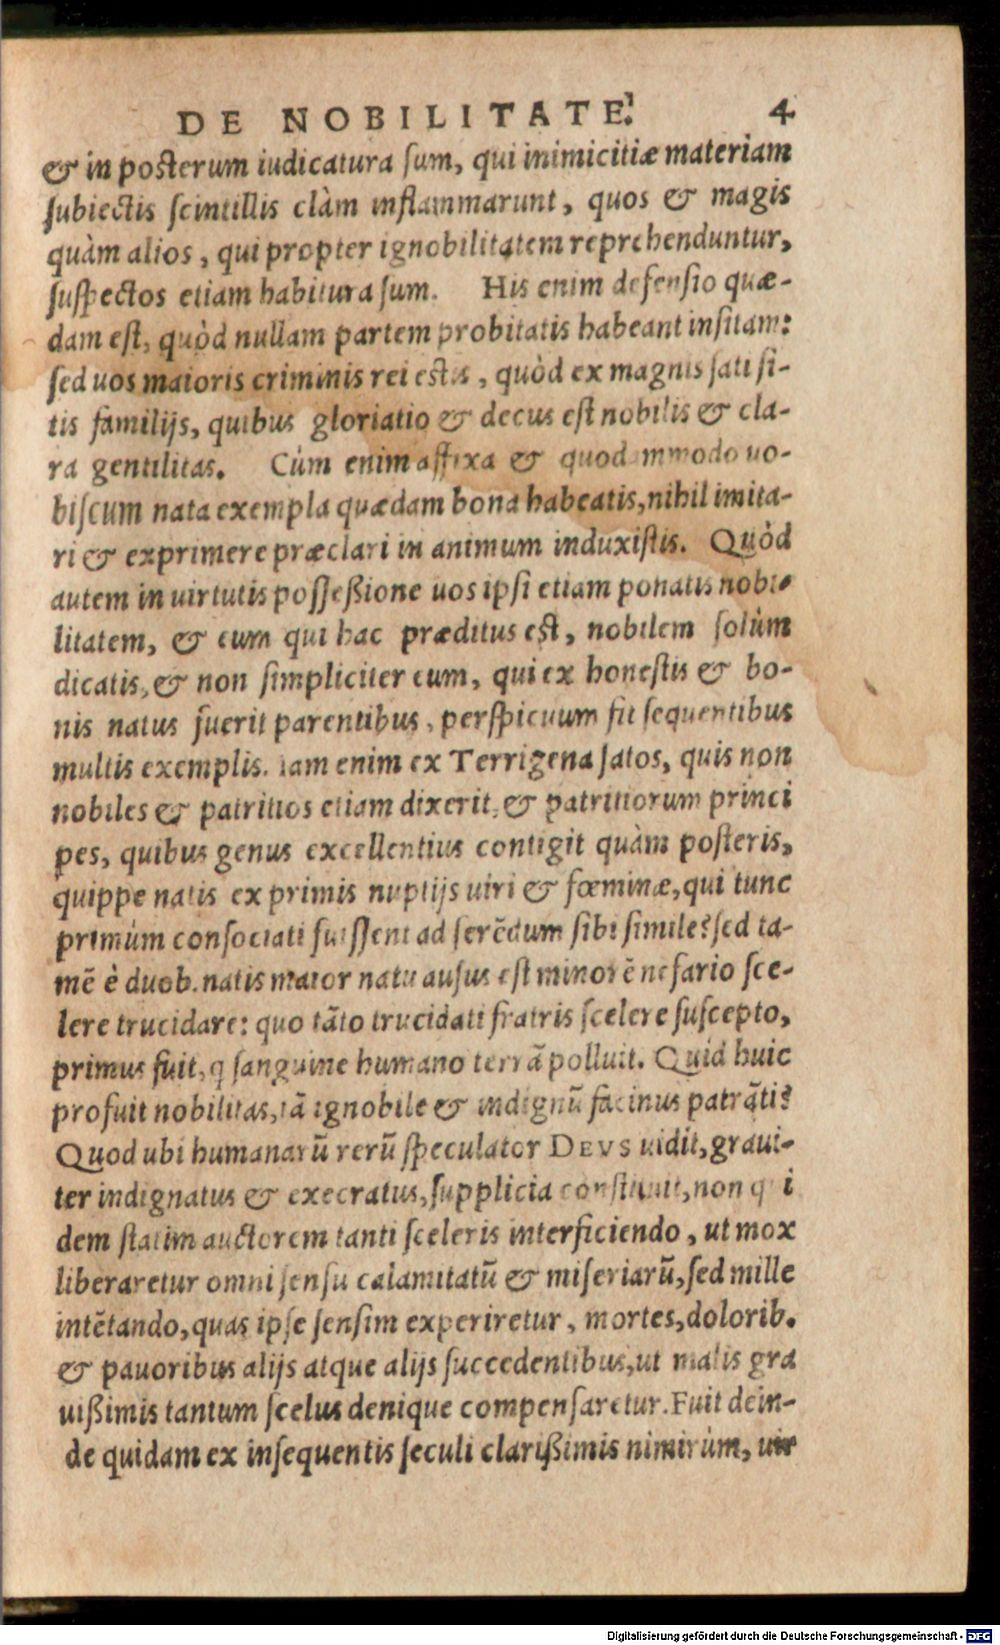 DE NOBILITATE. 4
& in posterum iudicatura sum, qui inimicitiæ materiam
subiectis scintillis clàm inflammarunt, quos & magis
quàm alios, qui propter ignobilitatem reprehenduntur,
suspectos etiam habitura sum. His enim defensio quæ-
dam est, quòd nullam partem probitatis habeant insitam:
sed uos maioris criminis rei estis, quòd ex magnis sati si-
tis familijs, quibus gloriatio & decus est nobilis & cla-
ra gentilitas. Cùm enim affixa & quodammodo uo-
biscum nata exempla quædam bona habeatis, nihil imita-
ri & exprimere præclari in animum induxistis. Quòd
autem in uirtutis possessione uos ipsi etiam ponatis nobi-
litatem, & eum qui hac præditus est, nobilem solùm
dicatis, & non simpliciter eum, qui ex honestis & bo-
nis natus fuerit parentibus, perspicuum fit sequentibus
multis exemplis. Iam enim ex Terrigena satos, quis non
nobiles & patritios etiam dixerit, & patritiorum princi
pes, quibus genus excellentius contigit quàm posteris,
quippe natis ex primis nuptijs uiri & fœminæ, qui tunc
primùm consociati fuissent ad serēdum sibi simile? sed ta-
mē è duob. natis maior natu ausus est minorē nefario sce-
lere trucidare: quo tāto trucidati fratris scelere suscepto,
primus fuit, q sanguine humano terrā polluit. Quid huic
profuit nobilitas, tā ignobile & indignū facinus patrāti?
Quod ubi humanarū rerū speculator DEVS uidit, graui-
ter indignatus & execratus, supplicia constituit, non qui
dem statim auctorem tanti sceleris interficiendo, ut mox
liberaretur omni sensu calamitatū & miseriarū, sed mille
intētando, quas ipse sensim experiretur, mortes, dolorib.
& pauoribus alijs atque alijs succedentibus, ut malis gra
uissimis tantum scelus denique compensaretur. Fuit dein-
de quidam ex insequentis seculi clarissimis nimirùm, uir
Digitalisierung gefördert durch die Deutsche Forschungsgemeinschaft - DFG